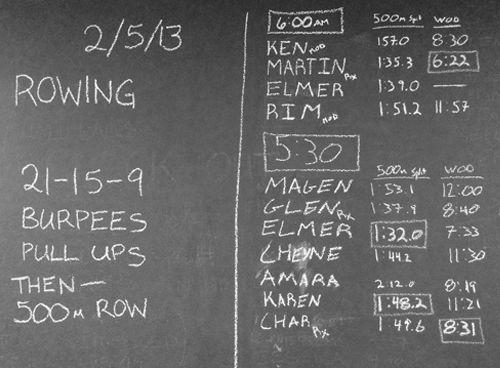 2/5/13
ROWING
21-15-9
BURPEES
PULL UPS
THEN—
500m ROW
6:00AM 500m Split WOD
KEN MOD 1:57.0 8:30
MARTIN Rx 1:35.3 6:22
ELMER 1:39.0 —
RIM MOD 1:51.2 11:57
5:30 500m Split WOD
MAGEN 1:53.1 12:00
GLEN Rx 1:37.9 8:40
ELMER 1:32.0 7:33
CHEYNE 1:44.2 11:30
AMARA 2:12.0 8:19
KAREN 1:48.2 11:21
CHAR Rx 1:49.6 8:31